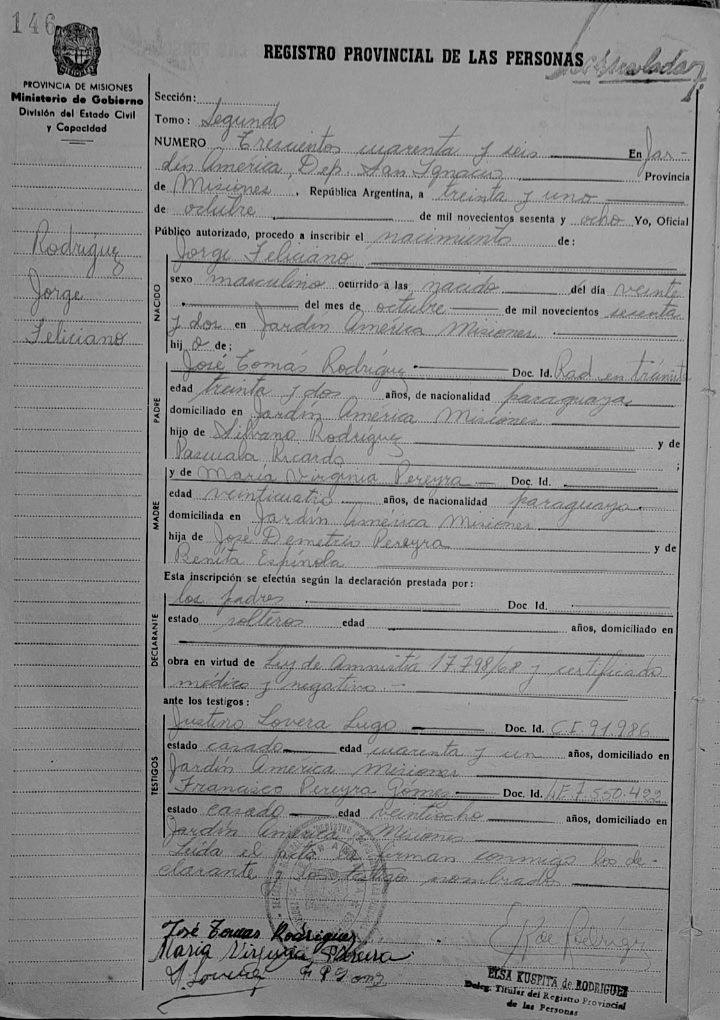 146
REGISTRO PROVINCIAL DE LAS PERSONAS
PROVINCIA DE MISIONES
Ministerio de Gobierno
División del Estado Civil
y Capacidad
Rodríguez
Jorge
Feliciano
Sección:
Tomo: Segundo
NUMERO Trescientos cuarenta y seis En Jar-
dín América, Dep. San Ignacio Provincia
de Misiones, República Argentina, a treinta y uno
de octubre de mil novecientos sesenta y ocho Yo, Oficial
Público autorizado, procedo a inscribir el nacimiento de:
Jorge Feliciano
NACIDO
sexo masculino ocurrido a las nacido del día veinte
del mes de octubre de mil novecientos sesenta
y dos en Jardín América Misiones
hijo de;
José Tomás Rodríguez Doc. Id. Rad. en trámite
PADRE
edad treinta y dos años, de nacionalidad paraguaya
domiciliado en Jardín América Misiones
hijo de Silvano Rodríguez y de
Pascuala Ricardo ;
y de María Virginia Pereyra Doc. Id.
MADRE
edad veinticuatro años, de nacionalidad paraguaya
domiciliada en Jardín América Misiones
hija de José Demetrio Pereyra y de
Benita Espínola
Esta inscripción se efectúa según la declaración prestada por:
los padres Doc. Id.
DECLARANTE
estado solteros edad años, domiciliado en
obra en virtud de Ley de Amnistía 17.798/68 y certificado
médico y negativo.-
ante los testigos:
Justino Lovera Lugo Doc. Id. C.I. 91.986
TESTIGOS
estado casado edad cuarenta y un años, domiciliado en
Jardín América Misiones
Francisco Pereyra Gómez Doc. Id. L.E. 7.550.422
estado casado edad veintiocho años, domiciliado en
Jardín América Misiones
Leída el acta la firman conmigo los de-
clarante y los testigo nombrados
José Tomas Rodriguez
Maria Virginia Pereira
ELSA KUSPITA de RODRIGUEZ
Deleg. Titular del Registro Provincial
de las Personas